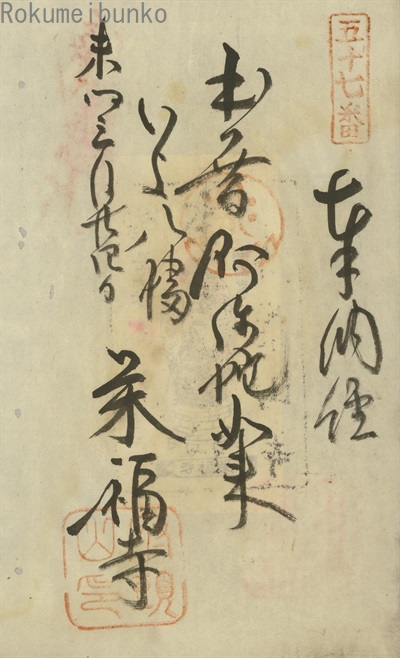 Rokumeibunko
五十七番
奉納経
本尊阿弥陀如来
いよ八幡
栄福寺
三月廿